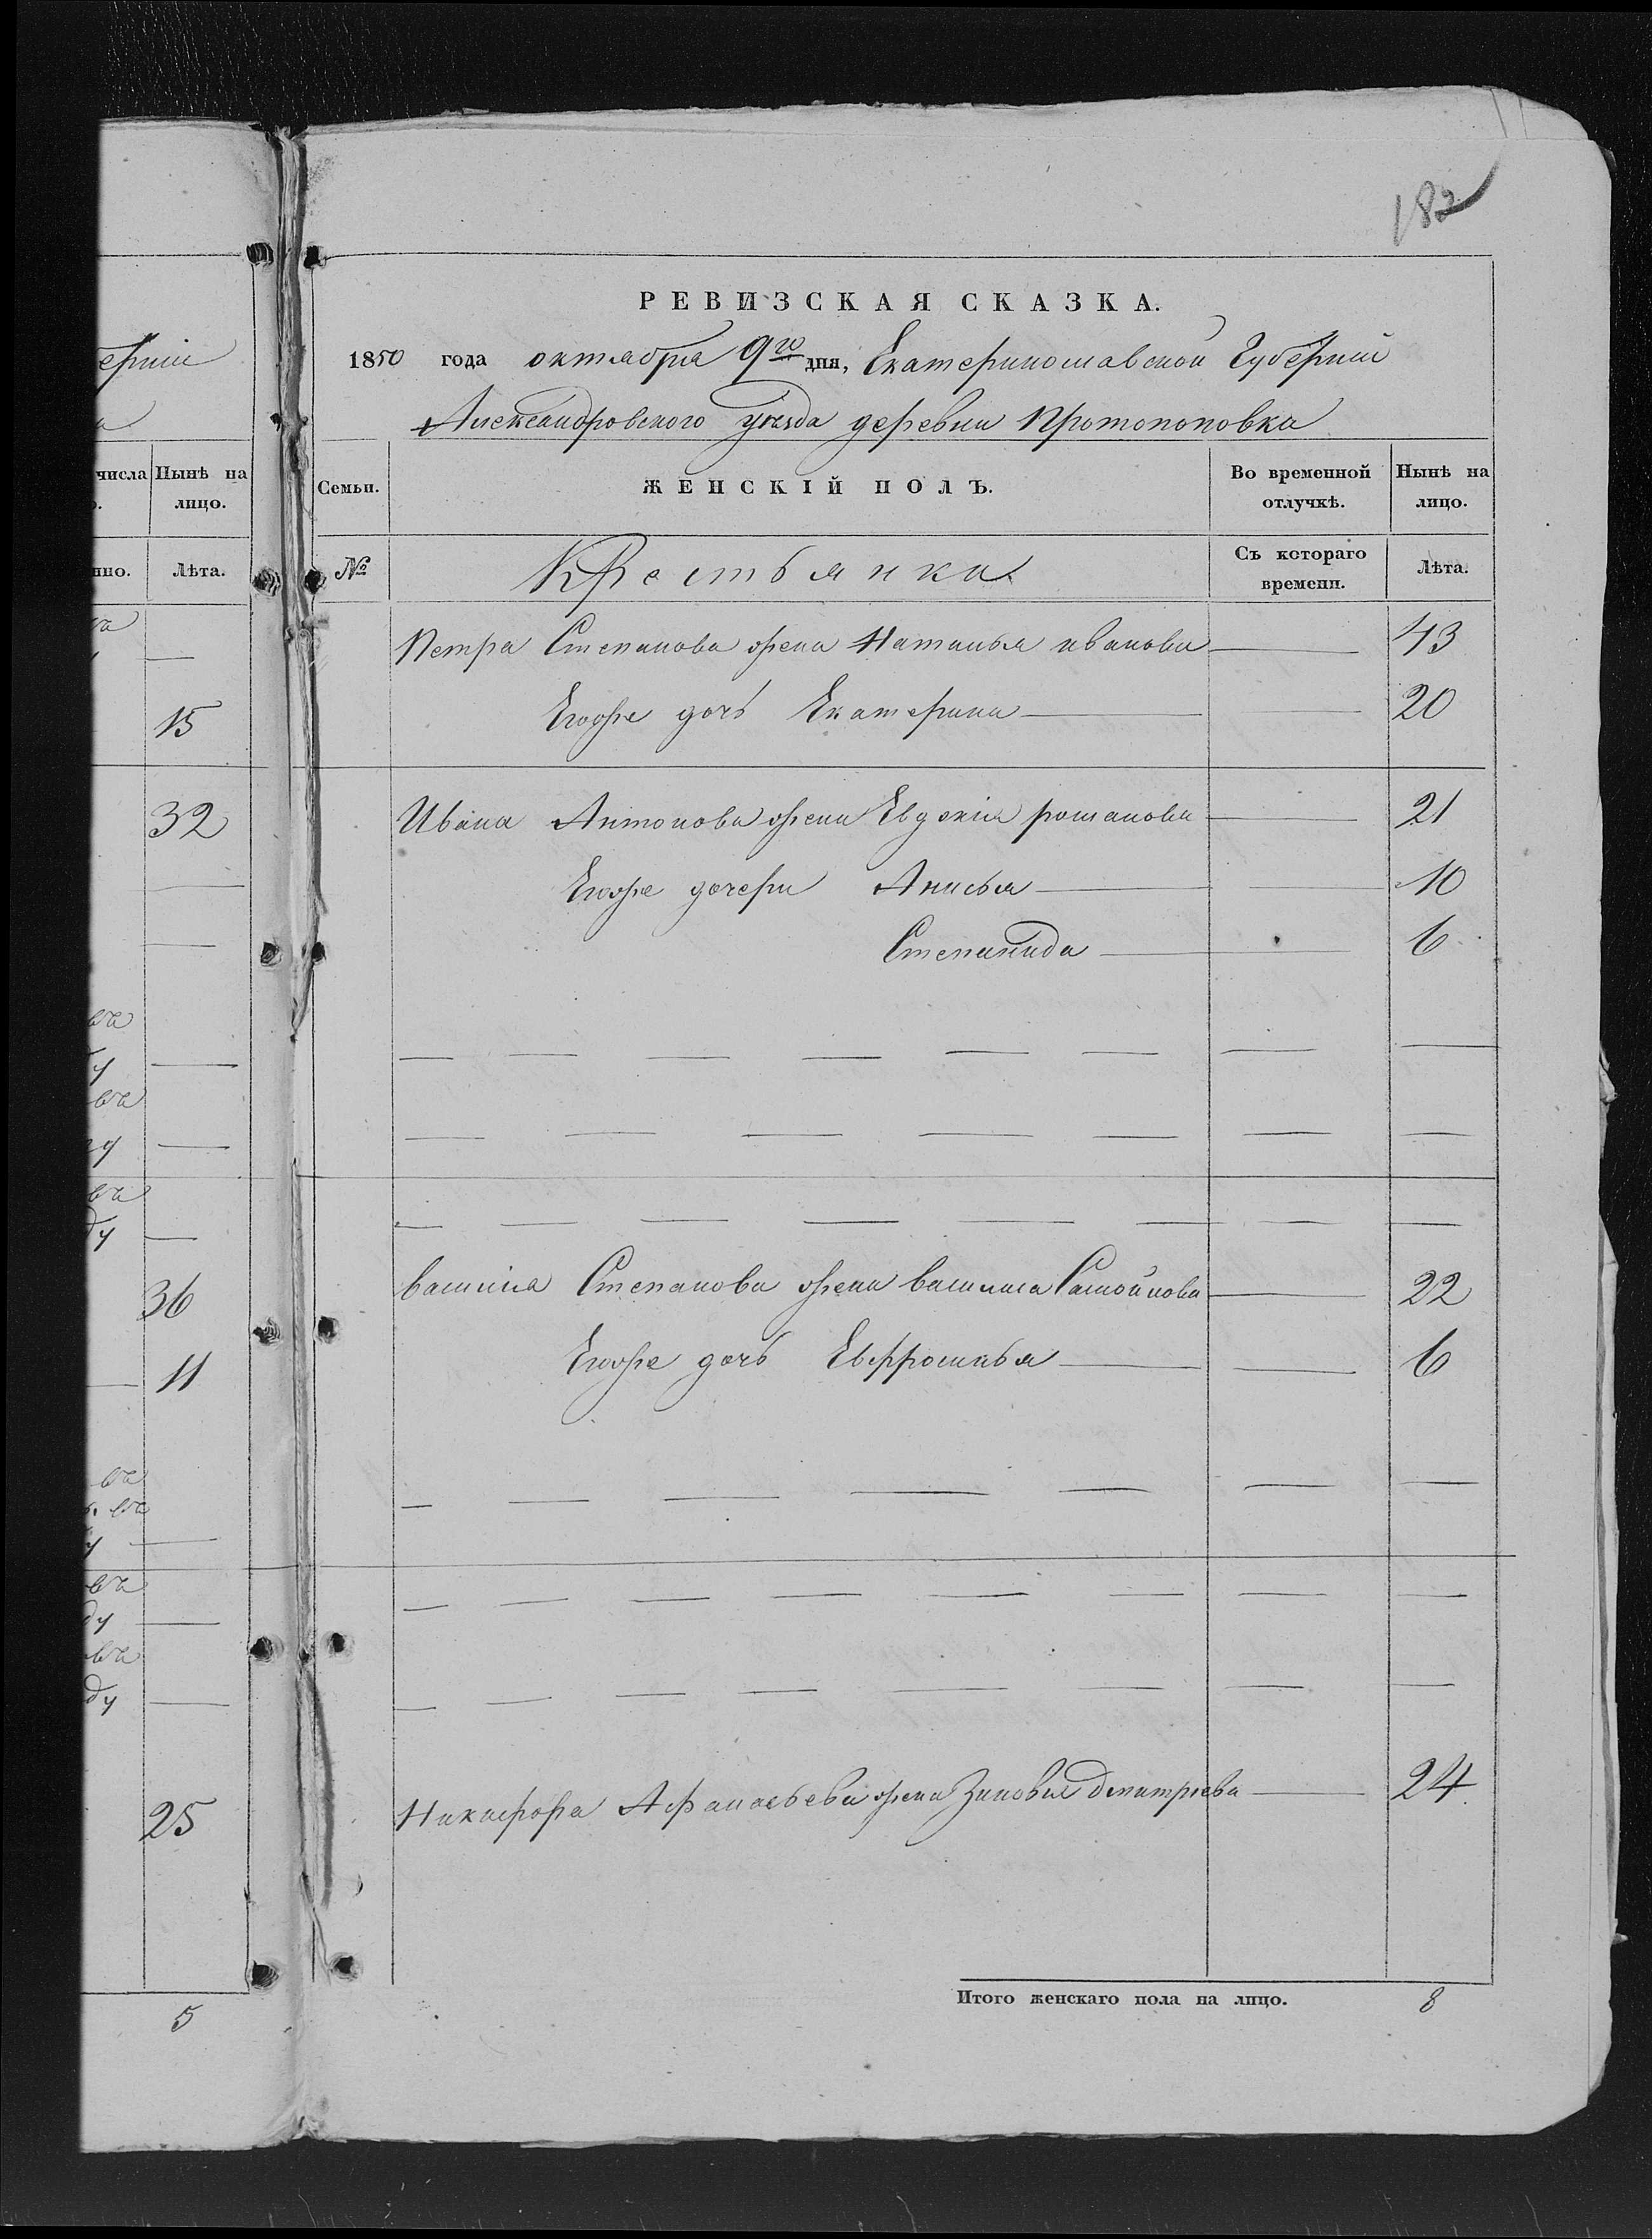 182
РЕВИЗСКАЯ СКАЗКА.
1850 года октября 9го дня, Екатеринославской Губернии
Александровского уезда деревни Протопоповка
Семьи.
ЖЕНСКІЙ ПОЛЪ.
Во временной отлучкѣ.
Нынѣ на лицо.
№
Крестьянка
Съ котораго времени.
Лѣта.
Петра Степанова жена Наталья иванова 43
Егоже дочь Екатерина 20
Ивана Антонова жена Евдокія романова 21
Егоже дочери Анисья 10
Степанида 6
василія Степанова жена василиса Самойлова 22
Егоже дочь Евфросинья 6
Никифора Афанасьева жена Зиновья дмитріева 24
Итого женскаго пола на лицо. 8
ерніи
числа
Нынѣ на лицо.
нно.
Лѣта.
ва
15
32
ва
у
ва
ду
ва
ду
36
11
ва
ва
у
ва
ду
ва
ду
25
5